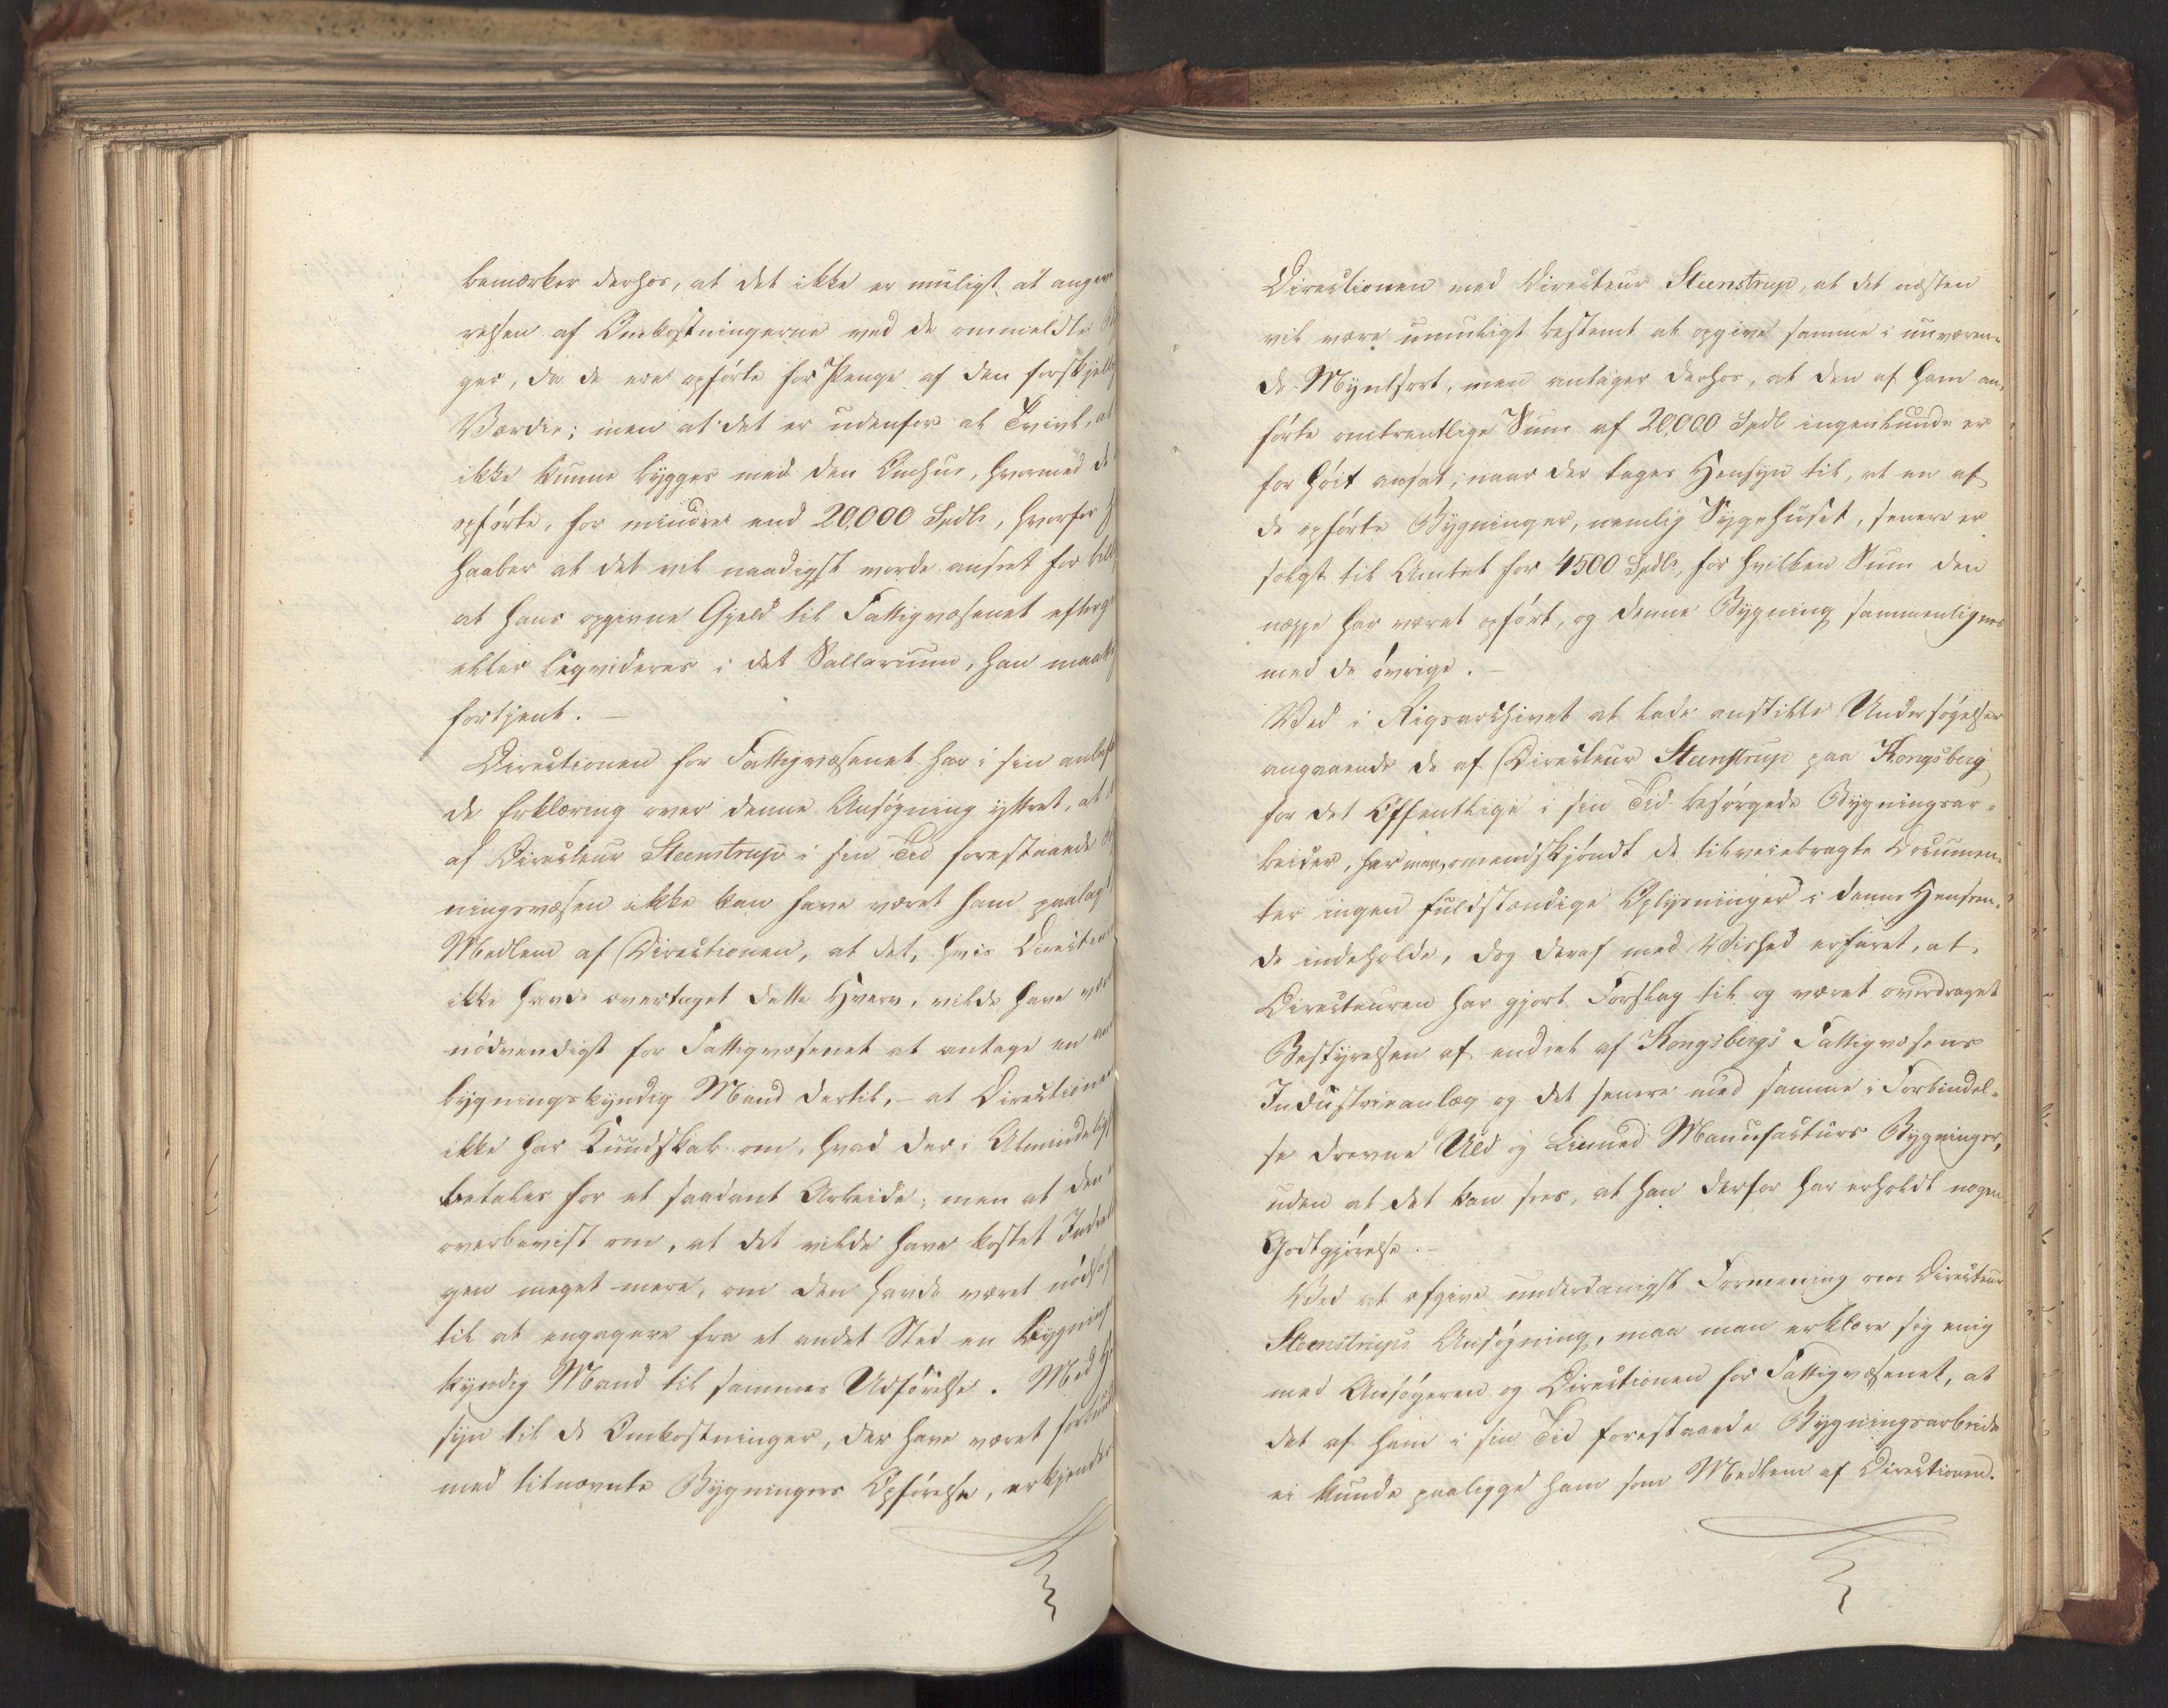 bemærker derhos, at det ikke er muligt at angive
relsen af Omkostningerne ved de ommeldte
ger, da de ere opførte for Penge af den forskjellig
Værdie; men at det er udenfor al Tvivl, at
ikke kunne bygges med den Omhue, hvormed de
opførte, for mindre end 20,000 Spdlr, hvorfor
haaber at det vil naadigst worde anseet for bill
at hans opgivne Gjeld til Fattigvæsenet efterg
eller liqvideres i det Sallarium, han maatte
fortjent. —
Directionen for Fattigvæsenet har i sin anbef
de Erklæring over denne Ansøgning yttret, at
af Directeur Steenstrup i sin Tid forestaaede
ningsvæsen ikke kan have været ham paalagt
Medlem af Directionen, at det, hvis Directeur
ikke havde overtaget dette Hverv, vilde have vær
nødvendigt for Fattigvæsenet at antage en
bygningskyndig Mand dertil, – at Directionen
ikke har Kundskab om, hvad der i Almindelig
betales for et saadant Arbeide; men at den
overbeviist om, at det vilde have kostet Indret
gen meget mere, om den havde været nødsag
til at engagere fra et andet Sted en Bygnings
kyndig Mand til sammes Udførelse. Med
syn til de Omkostninger, der have været forbund
med litnævnte Bygningers Opførelse, erkjender
Directionen med Directeur Steenstrup, at det næsten
vil være umuligt bestemt at opgive samme i nuværen-
de Myntsort, men antager derhos, at den af ham an-
førte omtrentlige Sum af 20,000 Spdlr ingenlunde er
for høit ansat, naar der tages Hensyn til, at en af
de opførte Bygninger, nemlig Sygehuset, senere er
solgt til Amtet for 4500 Spdlr, for hvilken Sum den
neppe har været opført, og denne Bygning sammenlignes
med de øvrige. —
Ved i Rigsarchivet at lade anstille Undersøgelser
angaaende de af Directeur Steenstrup paa Kongsberg
for det Offentlige i sin Tid besørgede Bygningsar-
beider, har man, omendskjøndt de tilveiebragte Documen-
ter ingen fuldstændige Oplysninger i denne Henseen-
de indeholde, dog deraf med Vished erfaret, at
Directeuren har gjort Forslag til og været overdraget
Bestyrelsen af endeel af Kongsbergs Fattigvæsens
Industrieanlæg og det senere med samme i Forbindel-
se drevne Uld og Linned Manufacturs Bygninger,
uden at det kan sees, at han derfor har erholdt nogen
Godtgjørelse. —
Ved at afgive underdanigst Formening om Directeur
Steenstrups Ansøgning, maa man erklære sig enig
med Ansøgeren og Directionen for Fattigvæsenet, at
det af ham i sin Tid forestaaede Bygningsarbeide
ei kunde paaligge ham som Medlem af Directionen.